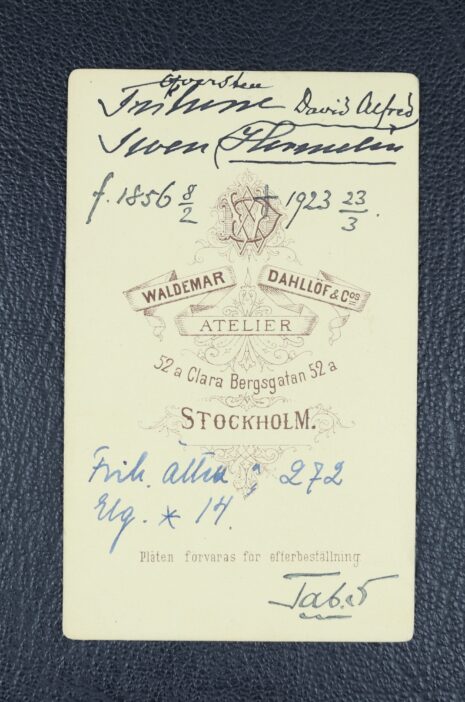 Öfversten
Friherre David Alfred
Sven Hermelin
f. 1856 8/2 † 1923 23/3.
WD
WALDEMAR DAHLLÖF & Cos
ATELIER
52 a Clara Bergsgatan 52 a
STOCKHOLM.
Frih. ätten 272
Elg. * 14.
Plåten förvaras för efterbeställning
Tab. 5